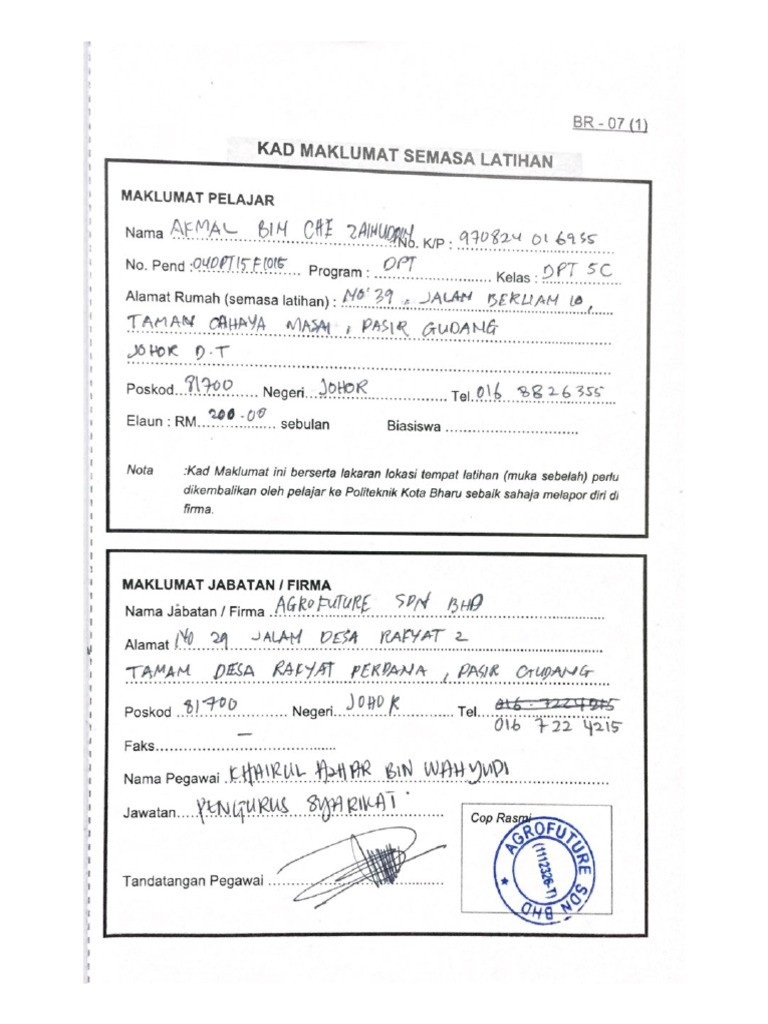 BR - 07 (1)
KAD MAKLUMAT SEMASA LATIHAN
MAKLUMAT PELAJAR
Nama AKMAL BIN CHE ZAINUDDIN No. K/P : 970824 01 6935
No. Pend : 04DPT15F1015 Program : DPT Kelas : DPT 5C
Alamat Rumah (semasa latihan) : NO 39, JALAN BERLIAN 10,
TAMAN CAHAYA MASAI, PASIR GUDANG
JOHOR D.T
Poskod 81700 Negeri JOHOR Tel. 016 8826355
Elaun : RM 200.00 sebulan Biasiswa
Nota :Kad Maklumat ini berserta lakaran lokasi tempat latihan (muka sebelah) perlu
dikembalikan oleh pelajar ke Politeknik Kota Bharu sebaik sahaja melapor diri di
firma.
MAKLUMAT JABATAN / FIRMA
Nama Jabatan / Firma AGROFUTURE SDN BHD
Alamat NO 29 JALAN DESA RAKYAT 2
TAMAN DESA RAKYAT PERDANA, PASIR GUDANG
Poskod 81700 Negeri JOHOR Tel.
016 722 4215
Faks -
Nama Pegawai KHAIRUL AZHAR BIN WAHYUDI
Jawatan PENGURUS SYARIKAT
Cop Rasmi
AGROFUTURE SDN BHD
(1112326-T)
Tandatangan Pegawai